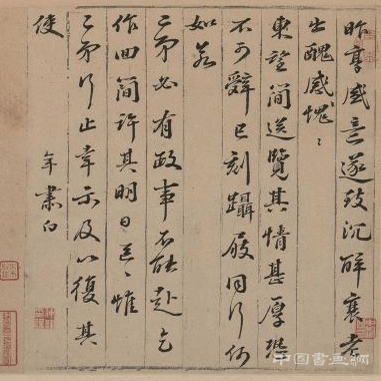 昨享盛意遂致沉醉衰老
出醜感愧〻
東望簡送覽其情甚厚恐
不可辭已刻躡履同行何
如若
二弟必有政事不能赴乞
作回簡許其明日〻惟
二弟行止幸示及以復其
使
年肅白
中国书画网